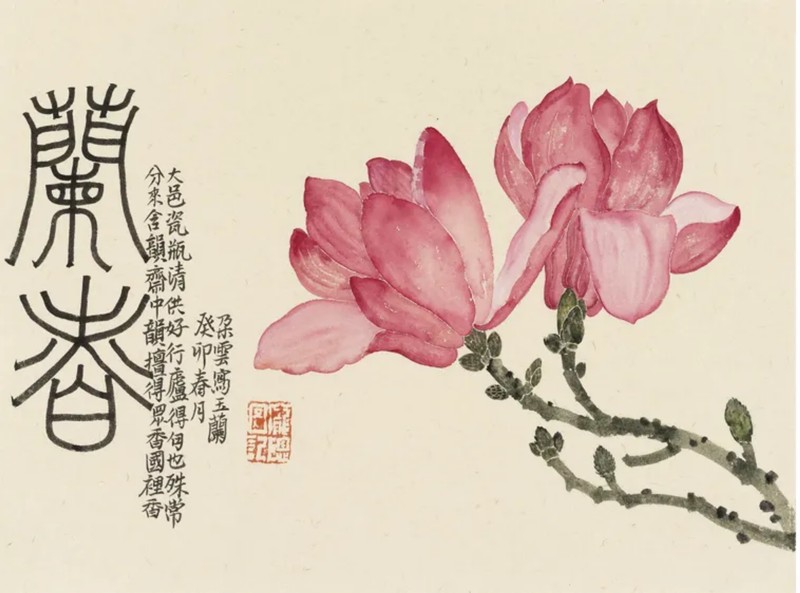 蘭
大邑瓷瓶清供好行廬得伊也殊常
分來含韻齋中韻擅得眾香國裡香
朵雲寫玉蘭
癸卯春月